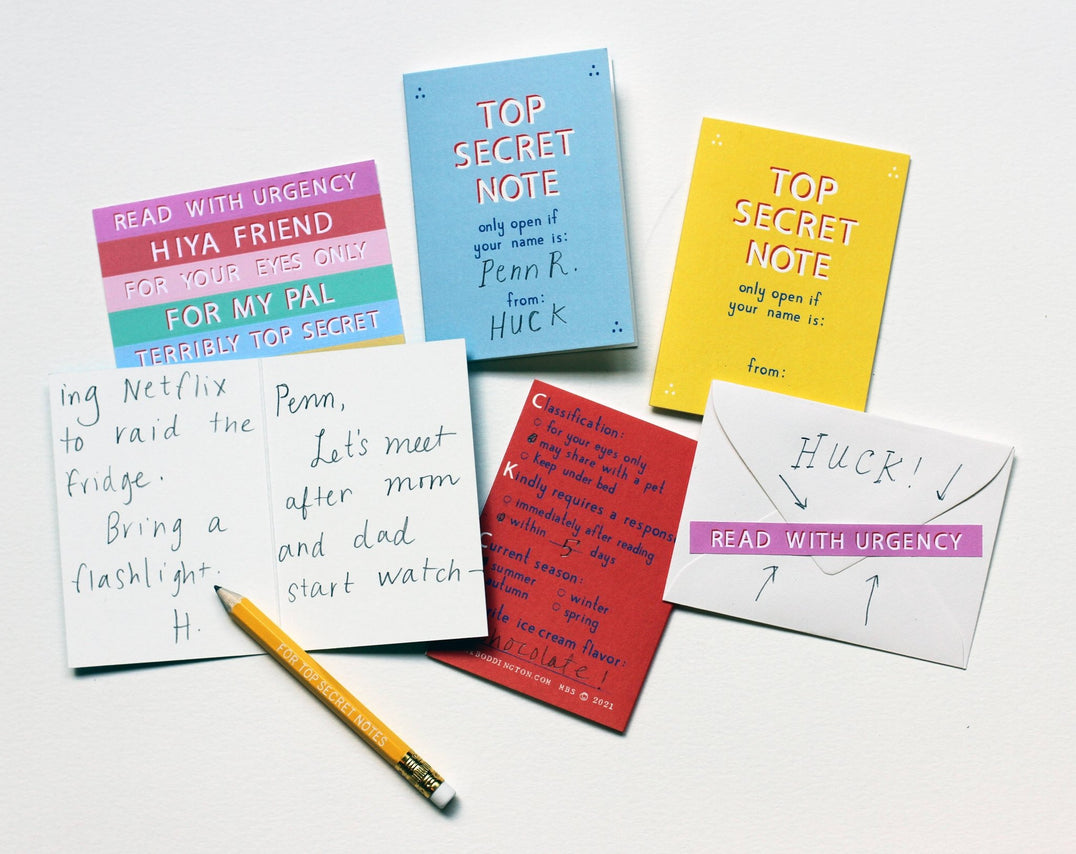 TOP
SECRET
NOTE
only open if
your name is:
Penn R.
from:
HUCK
TOP
SECRET
NOTE
only open if
your name is:
from:
READ WITH URGENCY
HIYA FRIEND
FOR YOUR EYES ONLY
FOR MY PAL
TERRIBLY TOP SECRET
ing Netflix
to raid the
fridge.
Bring a
flashlight.
H.
Penn,
Let's meet
after mom
and dad
start watch-
Classification:
for your eyes only
may share with a pet
Keep under bed
Kindly requires a respons
immediately after reading
within 5 days
Current season:
summer
autumn
winter
spring
ice cream flavor:
chocolate!
BODDINGTON.COM MBS © 2021
HUCK!
READ WITH URGENCY
FOR TOP SECRET NOTES